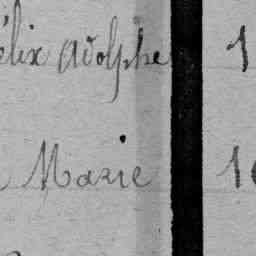 élix Adolphe 1
Marie 10